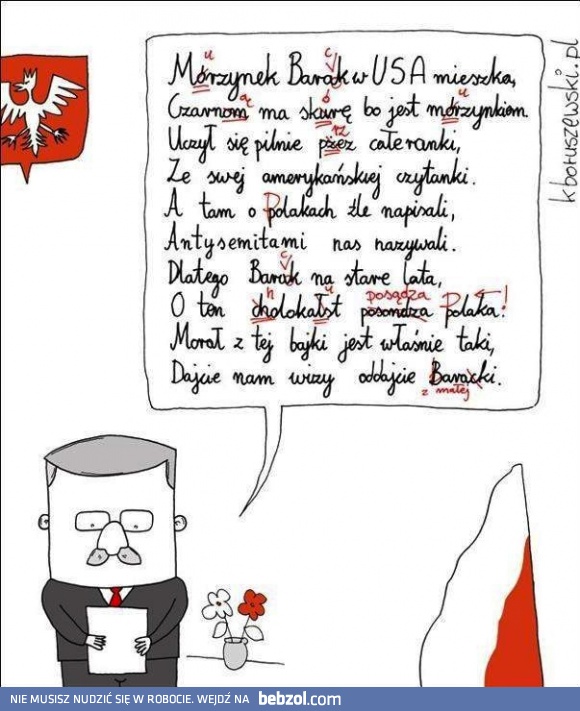 u c
Mórzynek Barak w USA mieszka,
ą ó u
Czarnom ma skurę bo jest mórzynkiem.
rz
Uczył się pilnie pżez całeranki,
Ze swej amerykańskiej czytanki.
A tam o Polakach źle napisali,
Antysemitami nas nazywali.
c
Dlatego Barak na stare lata,
h u posądza !
O ten cholokałst posondza Polaka.
Morał z tej bajki jest właśnie taki,
Dajcie nam wizy oddajcie Baracki.
z małej
kboruszewski.pl
NIE MUSISZ NUDZIĆ SIĘ W ROBOCIE. WEJDŹ NA bebzol.com